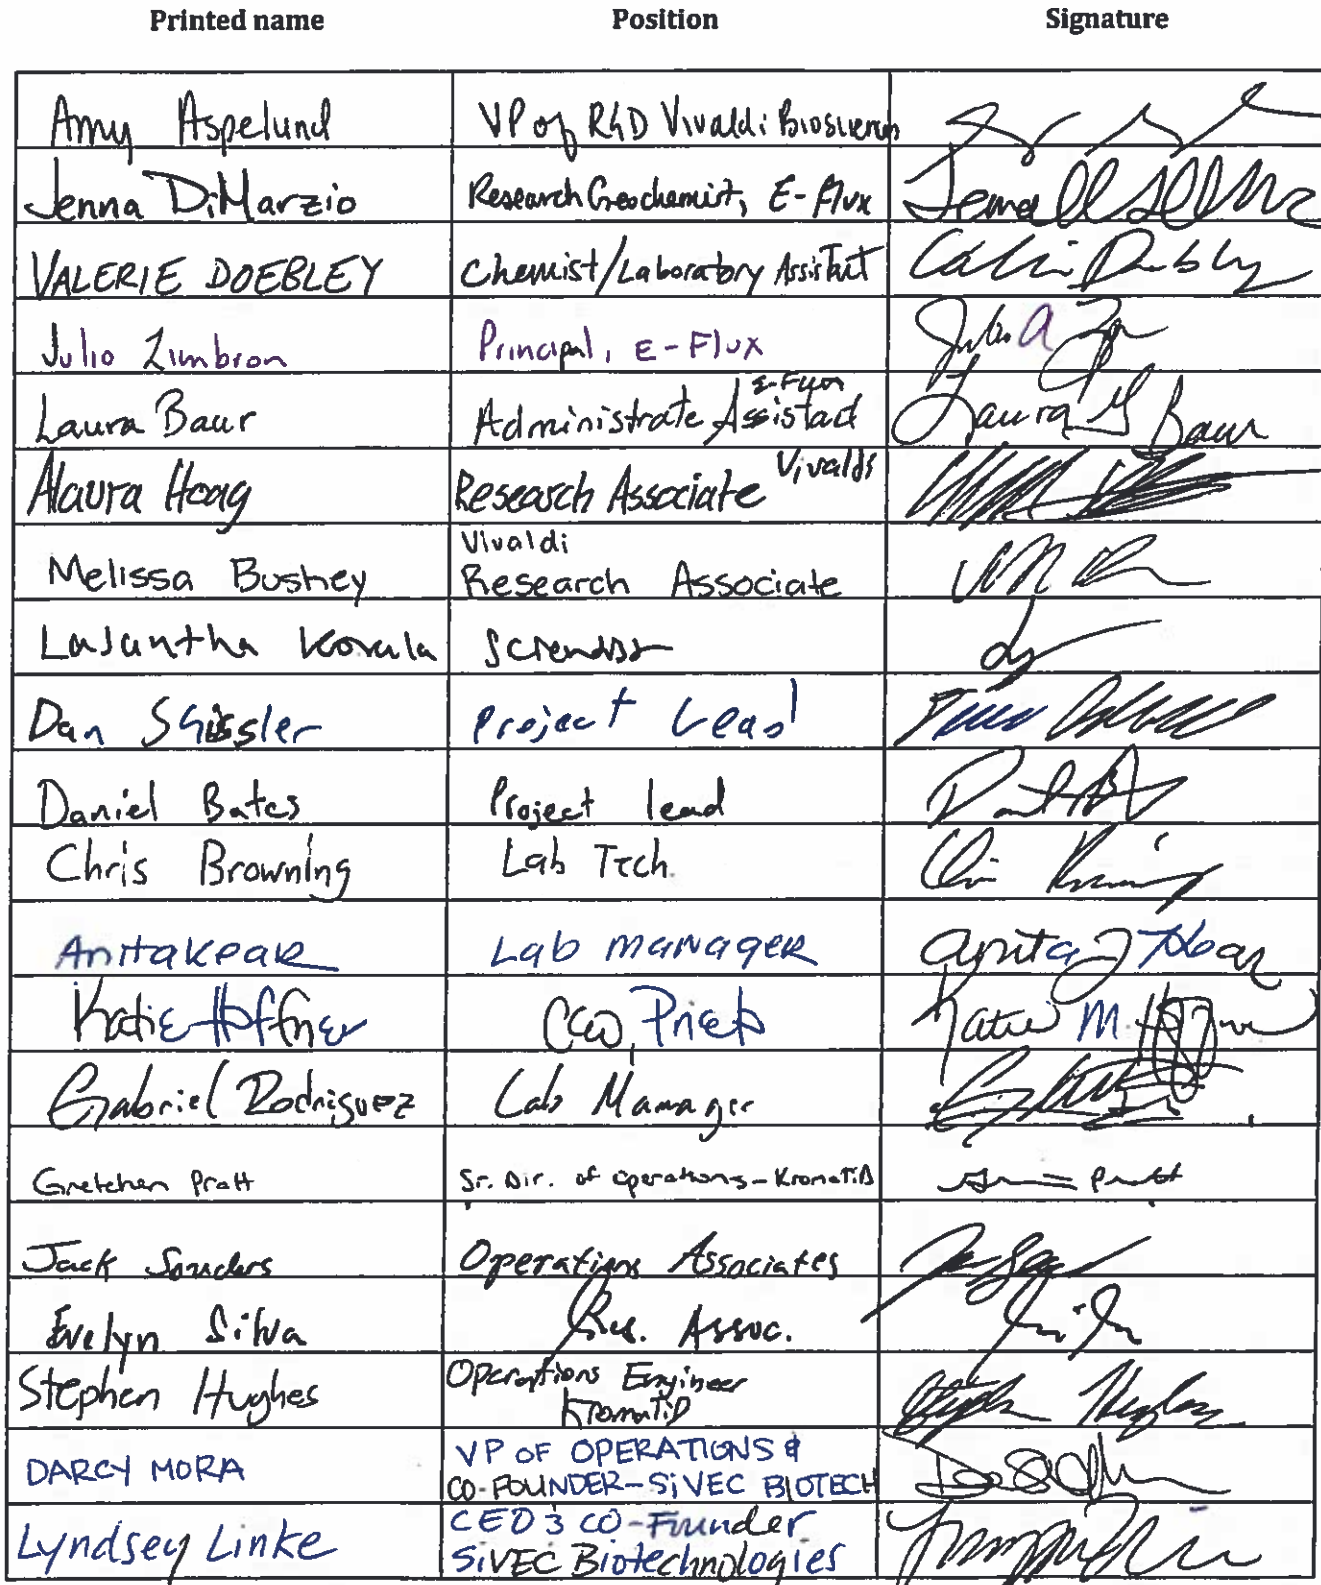 Printed name Position Signature
Amy Aspelund VP of R&D Vivaldi Biosciences
Jenna DiMarzio Research Geochemist, E-Flux
VALERIE DOEBLEY Chemist/Laboratory Assistant
Julio Zimbron Principal, E-Flux Julio A
E-Flux
Laura Baur Administrate Assistad Laura G Baur
Alaura Hoag Research Associate Vivaldi
Vivaldi
Melissa Bushey Research Associate
Lasantha Korala Scientist
Dan Shissler Project Lead
Daniel Bates Project lead
Chris Browning Lab Tech.
Anita Kear Lab manager Anita J Kear
Katie Hoffner CEO, Katie M Hoffner
Gabriel Rodriguez Lab Manager
Gretchen Pratt Sr. Dir. of Operations - KromaTiD Pratt
Jack Sanders Operations Associates
Evelyn Silva Res. Assoc.
Stephen Hughes Operations Engineer Stephen Hughes
KromaTiD
DARCY MORA VP OF OPERATIONS &
CO-FOUNDER - SiVEC BIOTECH
Lyndsey Linke CEO & CO-Founder
SiVEC Biotechnologies